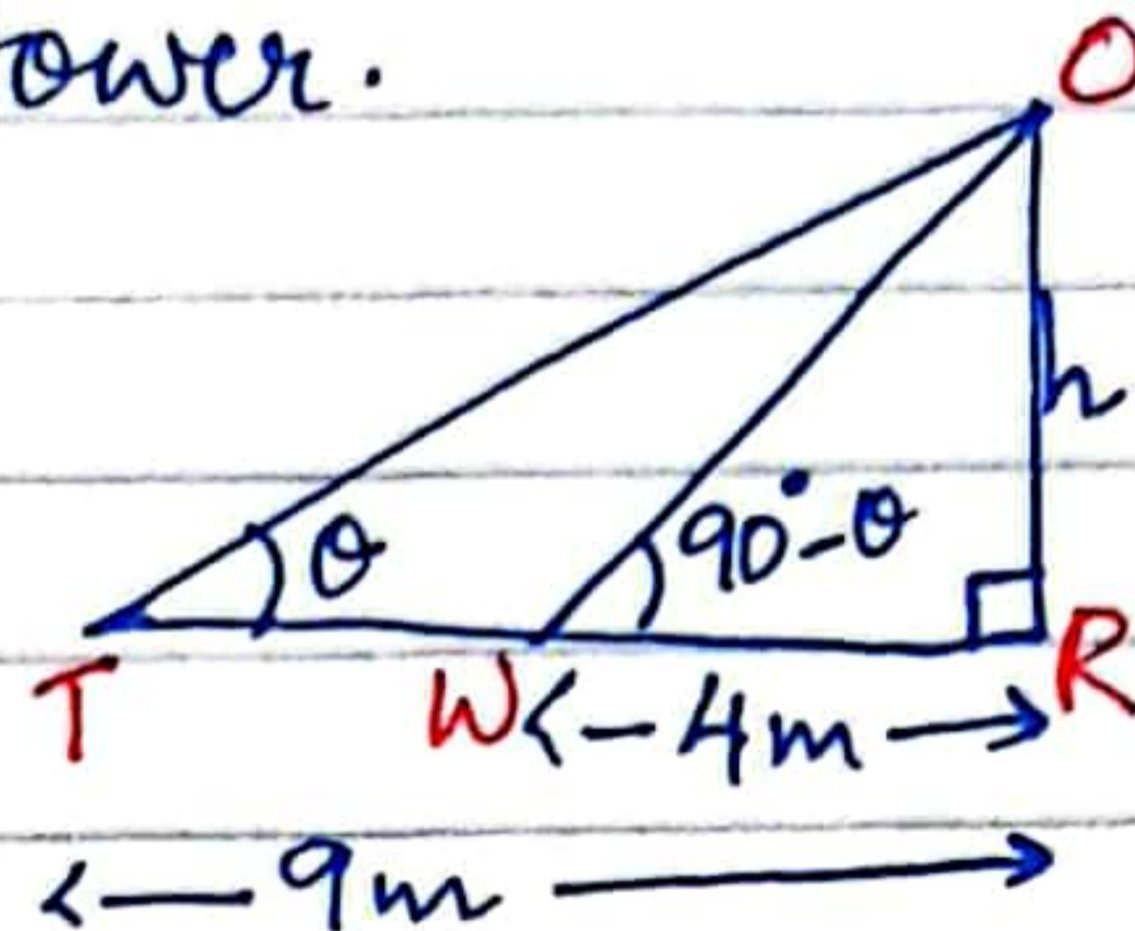 ower.
O
h
θ
90°-θ
T
W
R
<- 4m ->
<- 9m ->